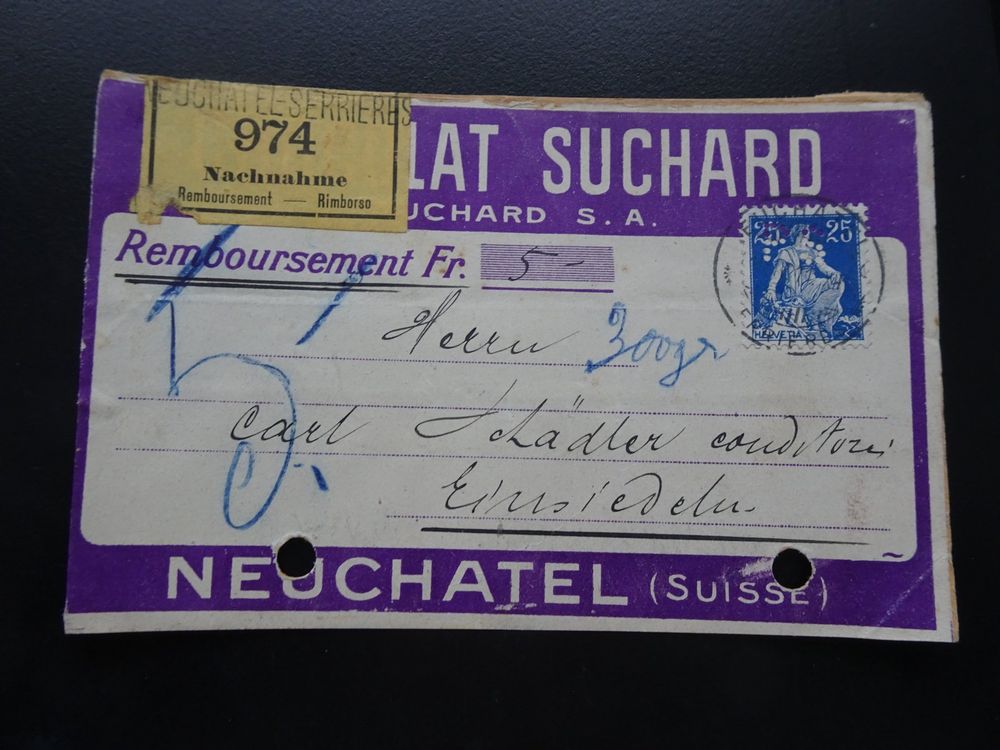 974
Nachnahme
Remboursement — Rimborso
LAT SUCHARD
UCHARD S. A.
Remboursement Fr. 5 -
25 25
HELVETIA
Herrn
300gr
5.
Carl Schädler conditori
Einsiedeln
NEUCHATEL (SUISSE)